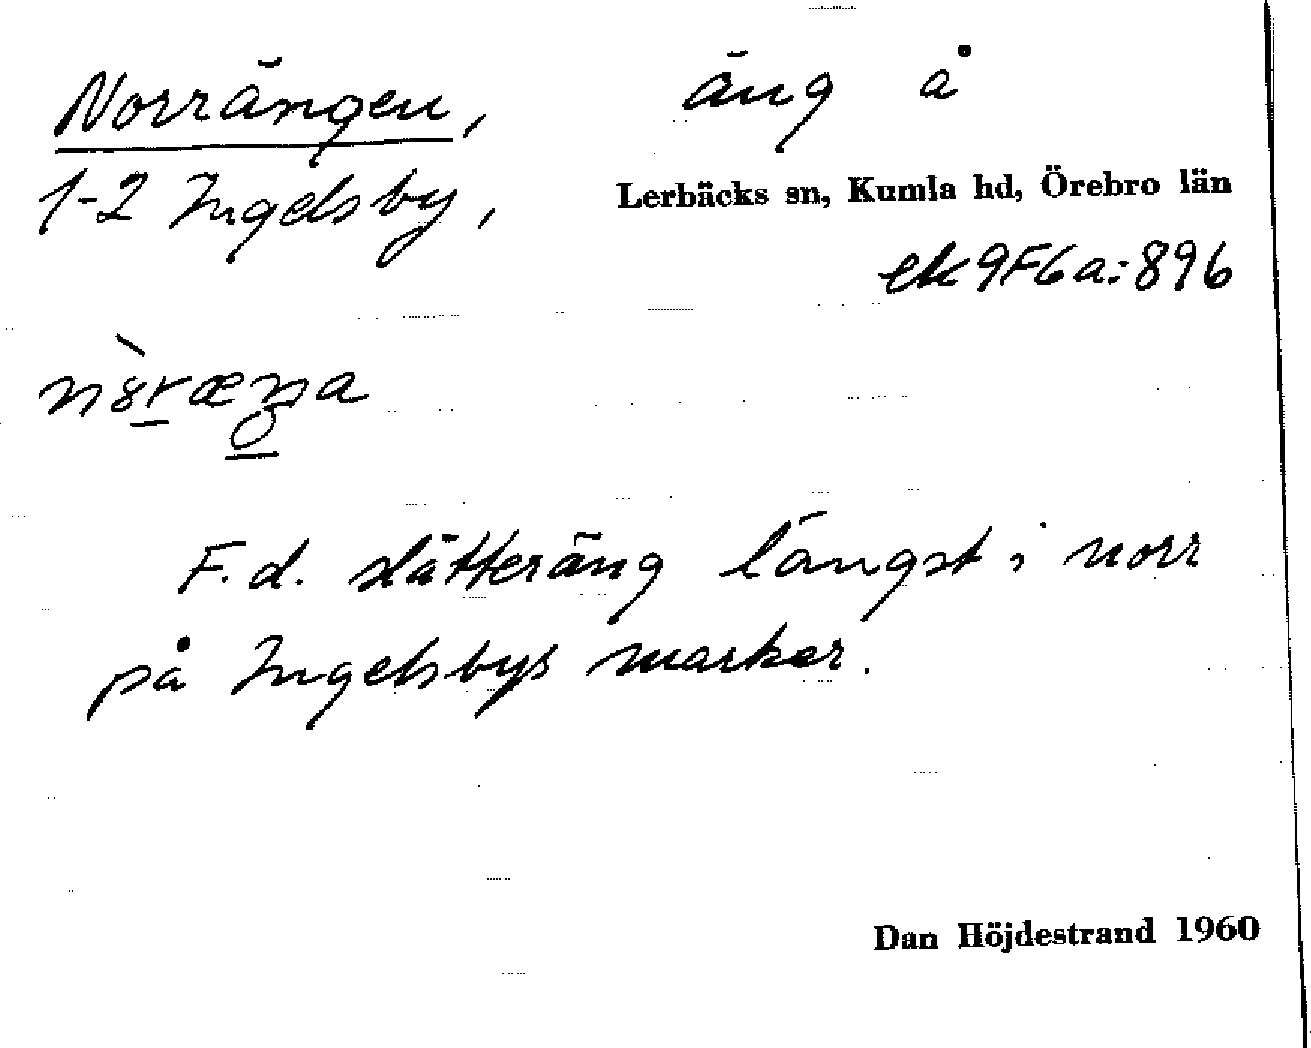 Norrängen, äng å
1-2 Ingelsby, Lerbäcks sn, Kumla hd, Örebro län
ek 9F6a:896
F.d. slätteräng längst i norr
på Ingelsbys marker.
Dan Höjdestrand 1960